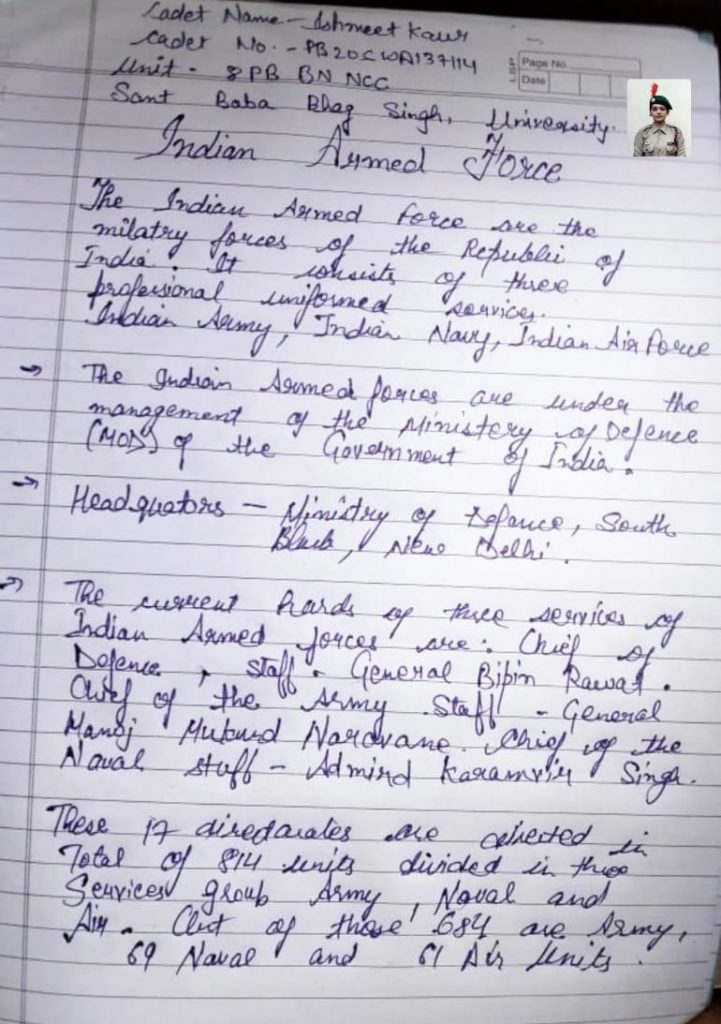 Cadet Name - Ishmeet Kaur
Cadet No. - PB20SWA137114
Unit - 8 PB BN NCC
Sant Baba Bhag Singh, University.
Page No.
Date
Indian Armed Force
The Indian Armed force are the
milatry forces of the Republic of
India. It consists of three
professional uniformed services.
Indian Army, Indian Navy, Indian Air Force
→ The Indian Armed forces are under the
management of the Ministery of Defence
(MOD) of the Government of India.
→ Headquators - Ministry of Defance, South
Block, New Delhi.
→ The current heads of three services of
Indian Armed forces are: Chief of
Defence, staff - General Bipin Rawat.
Chief of the Army Staff - General
Manoj Mukund Naravane. Chief of the
Naval staff - Admird Karamvir Singh.
These 17 directarates are in
Total of 814 units divided in three
Services group Army, Naval and
Air. Out of those 684 are Army,
69 Naval and 61 Air Units.